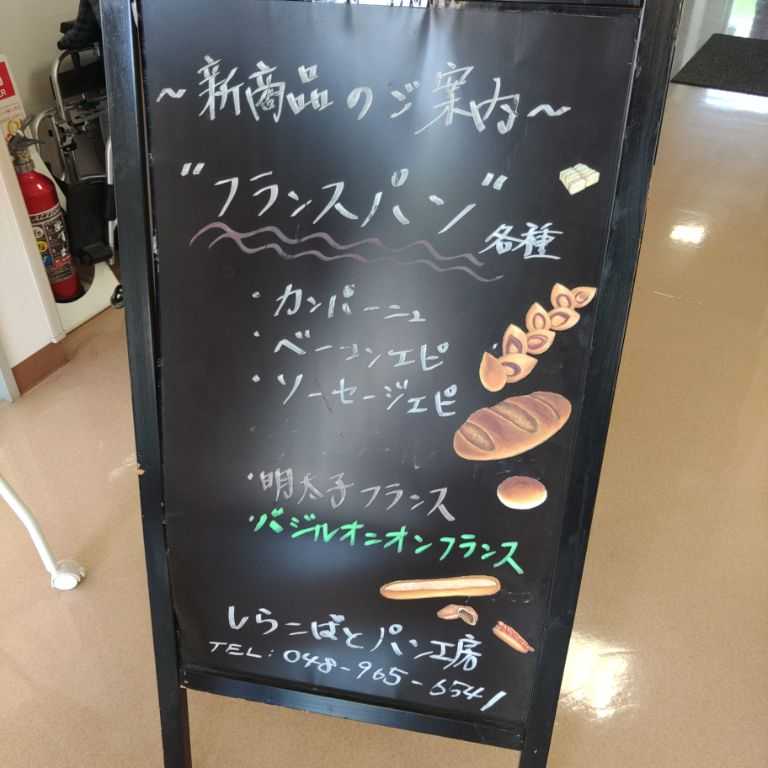 ～新商品のご案内～
"フランスパン"
各種
・カンパーニュ
・ベーコンエピ
・ソーセージエピ
・明太子フランス
・バジルオニオンフランス
しらこばとパン工房
TEL: 048-965-6541